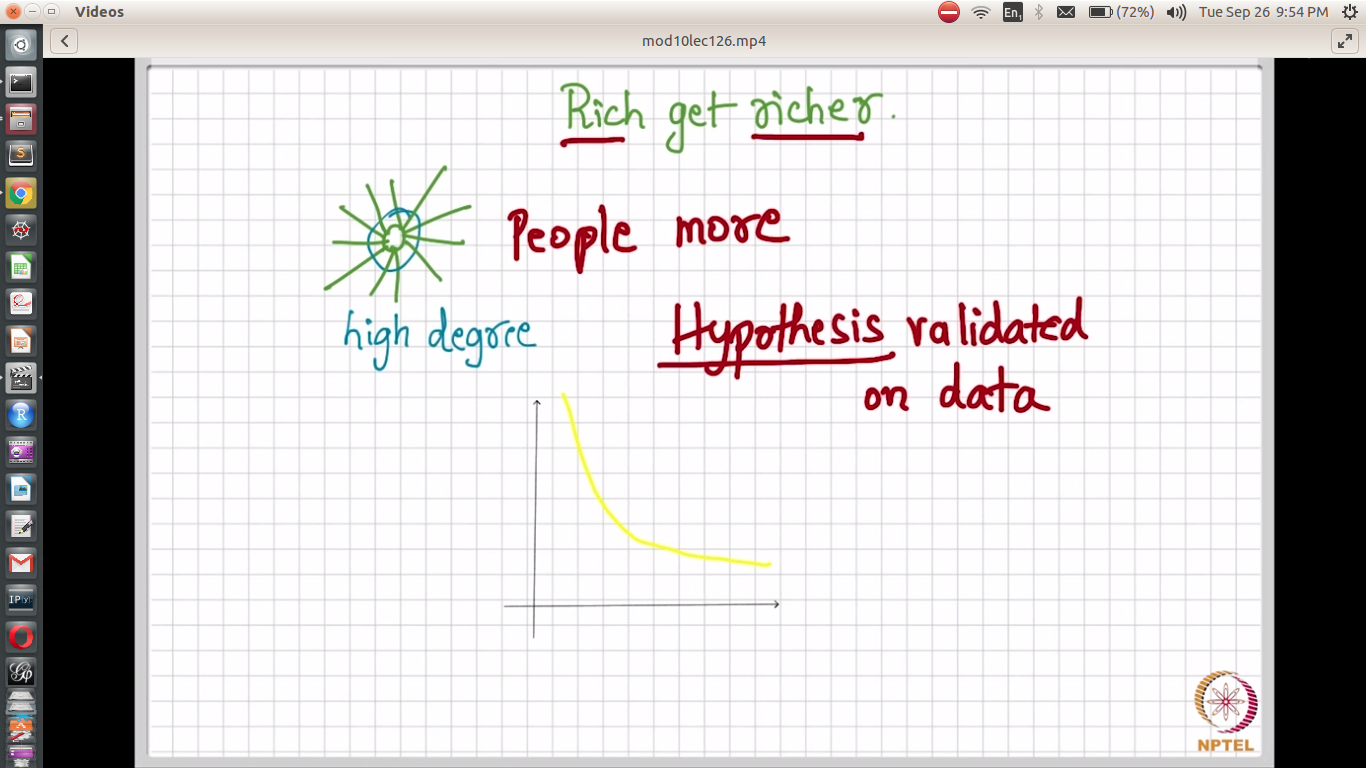 Videos
En1
(72%)
Tue Sep 26 9:54 PM
mod10lec126.mp4
Rich get richer.
People more
high degree
Hypothesis validated
on data
NPTEL